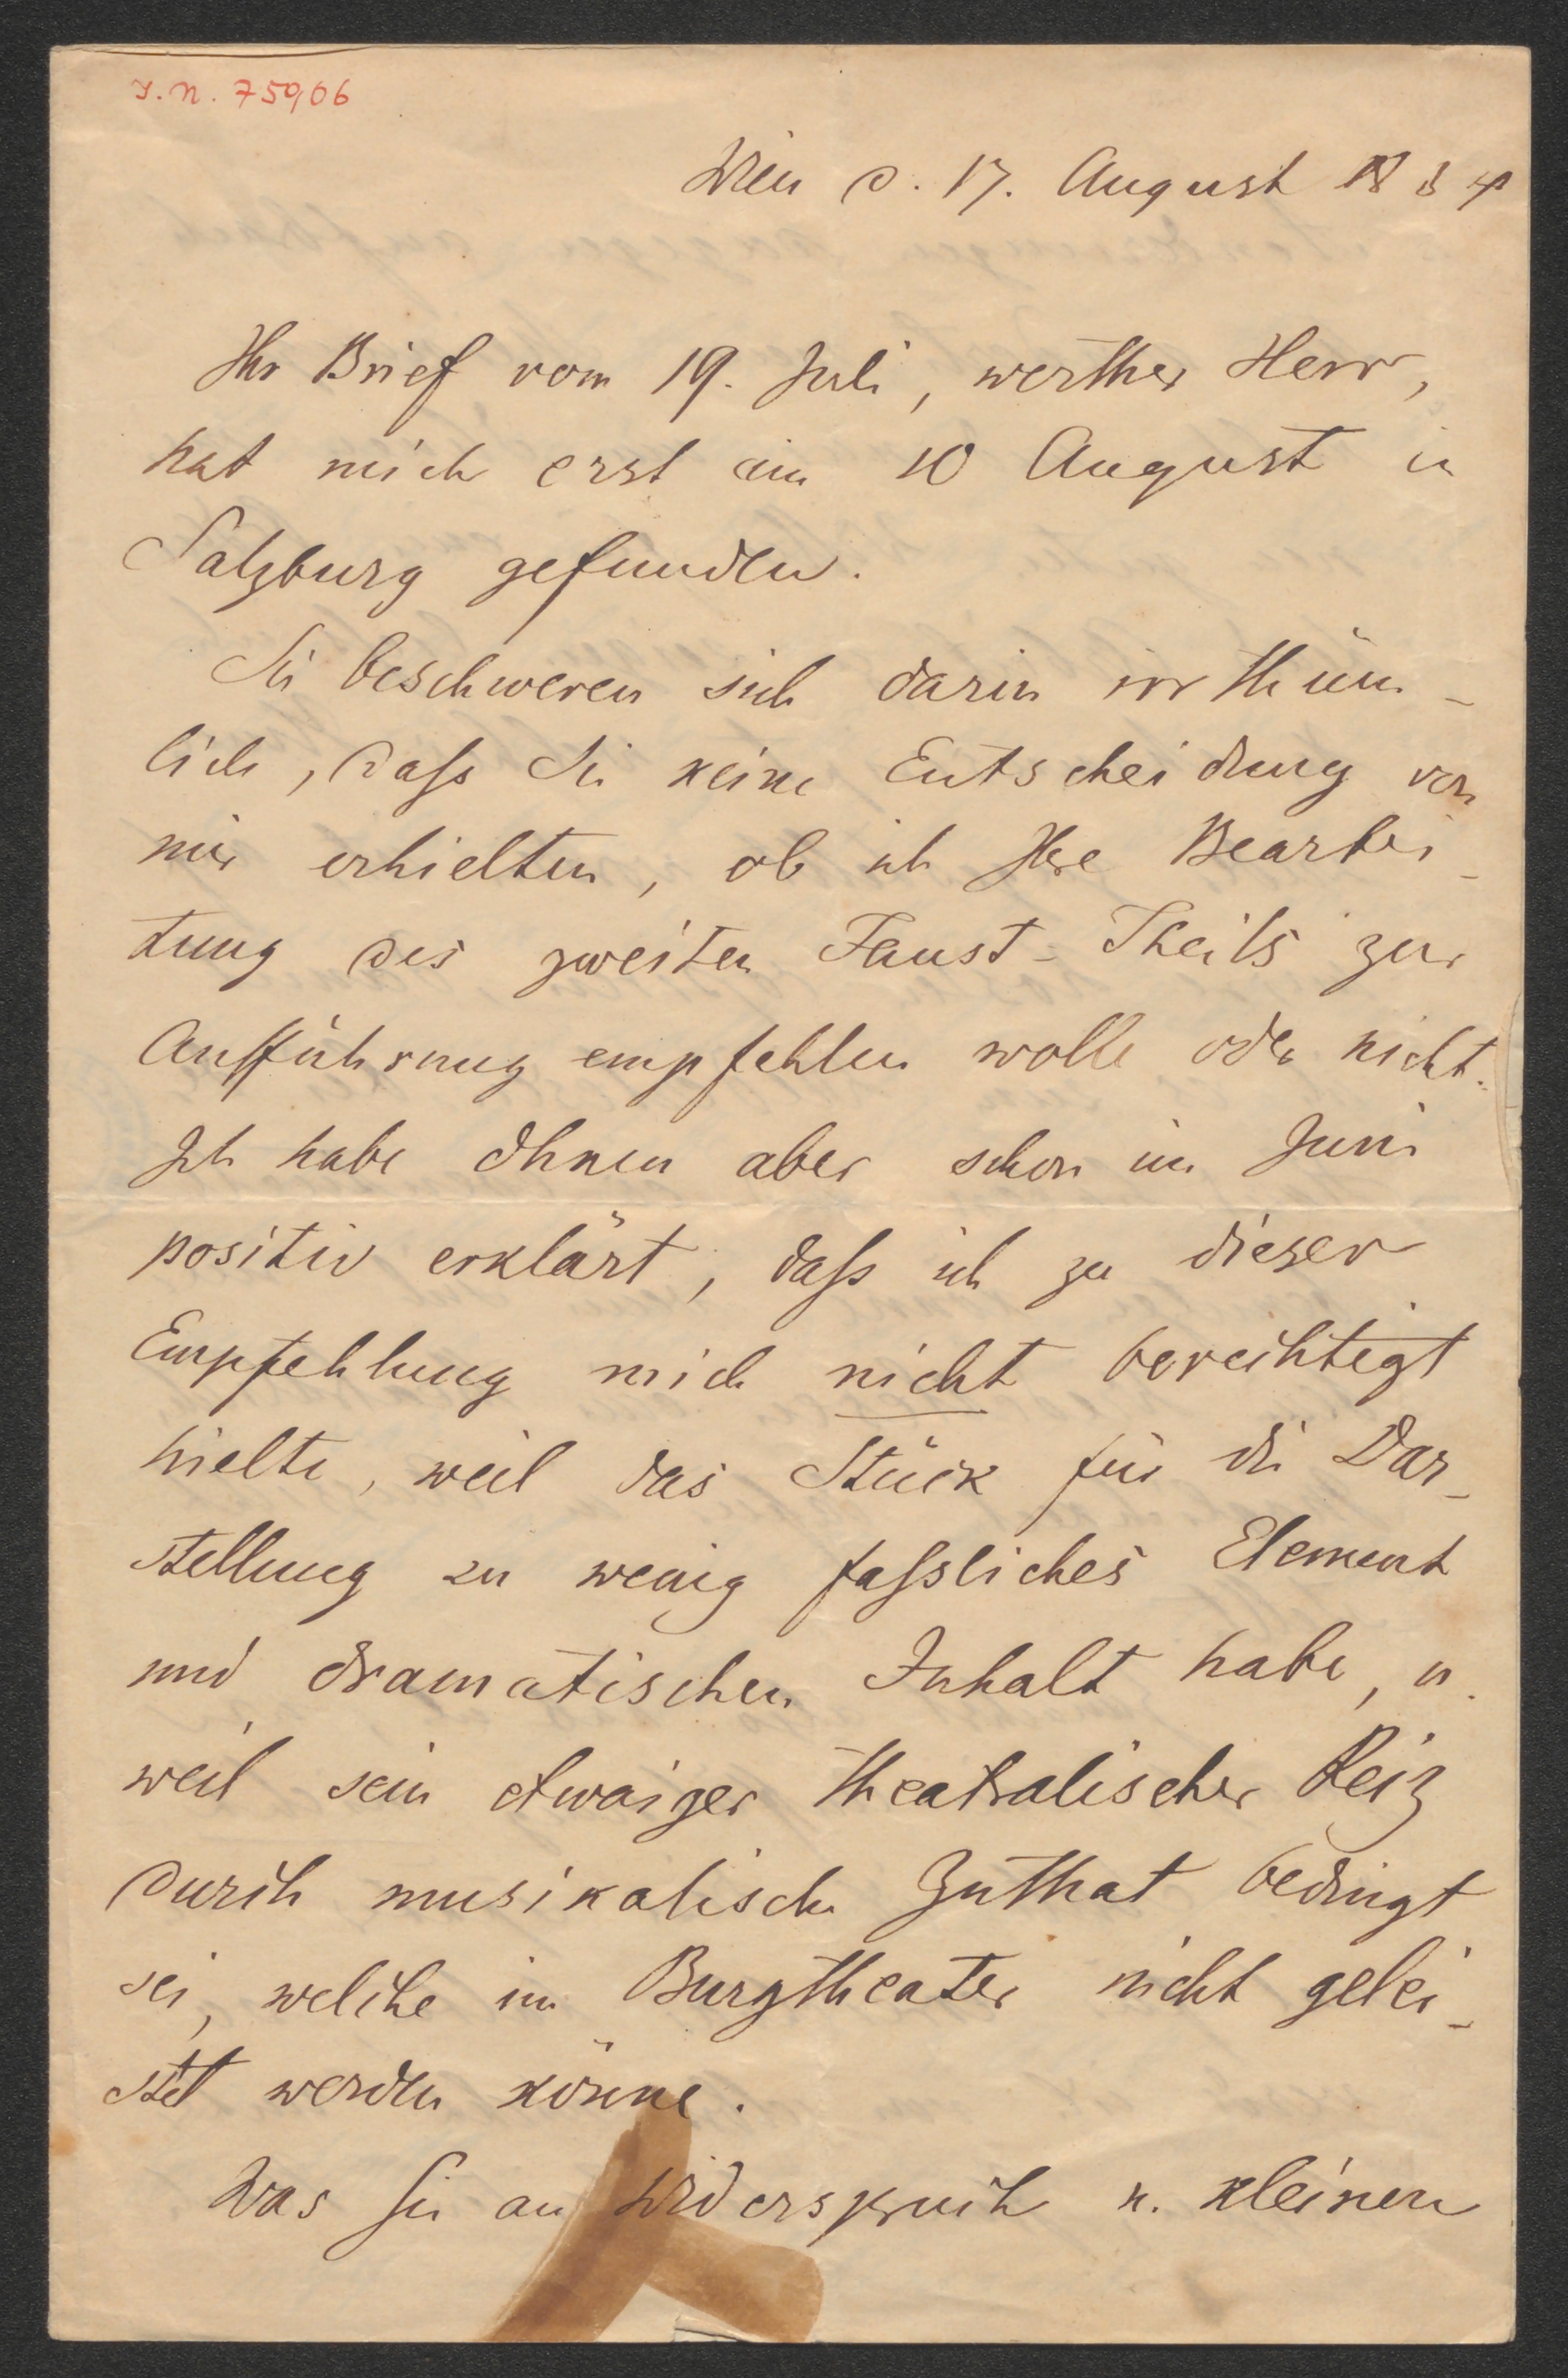 I. N. 750/06
Wien d. 17. August
Ihr Brief vom 19. Juli, werther Herr,
hat mich erst am 10 August in
Salzburg gefunden.
Sie beschweren sich darin irrthüm-
lich, dass Sie keine Entscheidung von
mir erhielten, ob ich Ihre Bearbei-
tung des zweiten Faust-Theils zur
Aufführung empfehlen wolle oder nicht.
Ich habe Ihnen aber schon im Juni
positiv erklärt, dass ich zu dieser
Empfehlung mich nicht berechtigt
hielte, weil das Stück für die Dar-
stellung zu wenig fassliches Element
und dramatischen Inhalt habe, u.
weil sein etwaiger theatralischer Reiz
durch musikalische Zuthat bedingt
sei, welche im Burgtheater nicht gelei-
stet werden könne.
Was Sie an Widerspruch u. kleinen